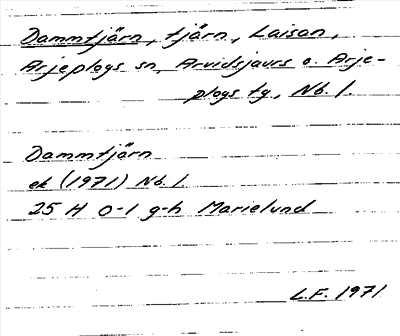 Dammtjärn, tjärn, Laisan,
Arjeplogs sn, Arvidsjaurs o. Arje-
plogs tg, Nb. l.
Dammtjärn
ek (1971) Nb. l
25 H 0-1 g-h Marielund
L.F. 1971